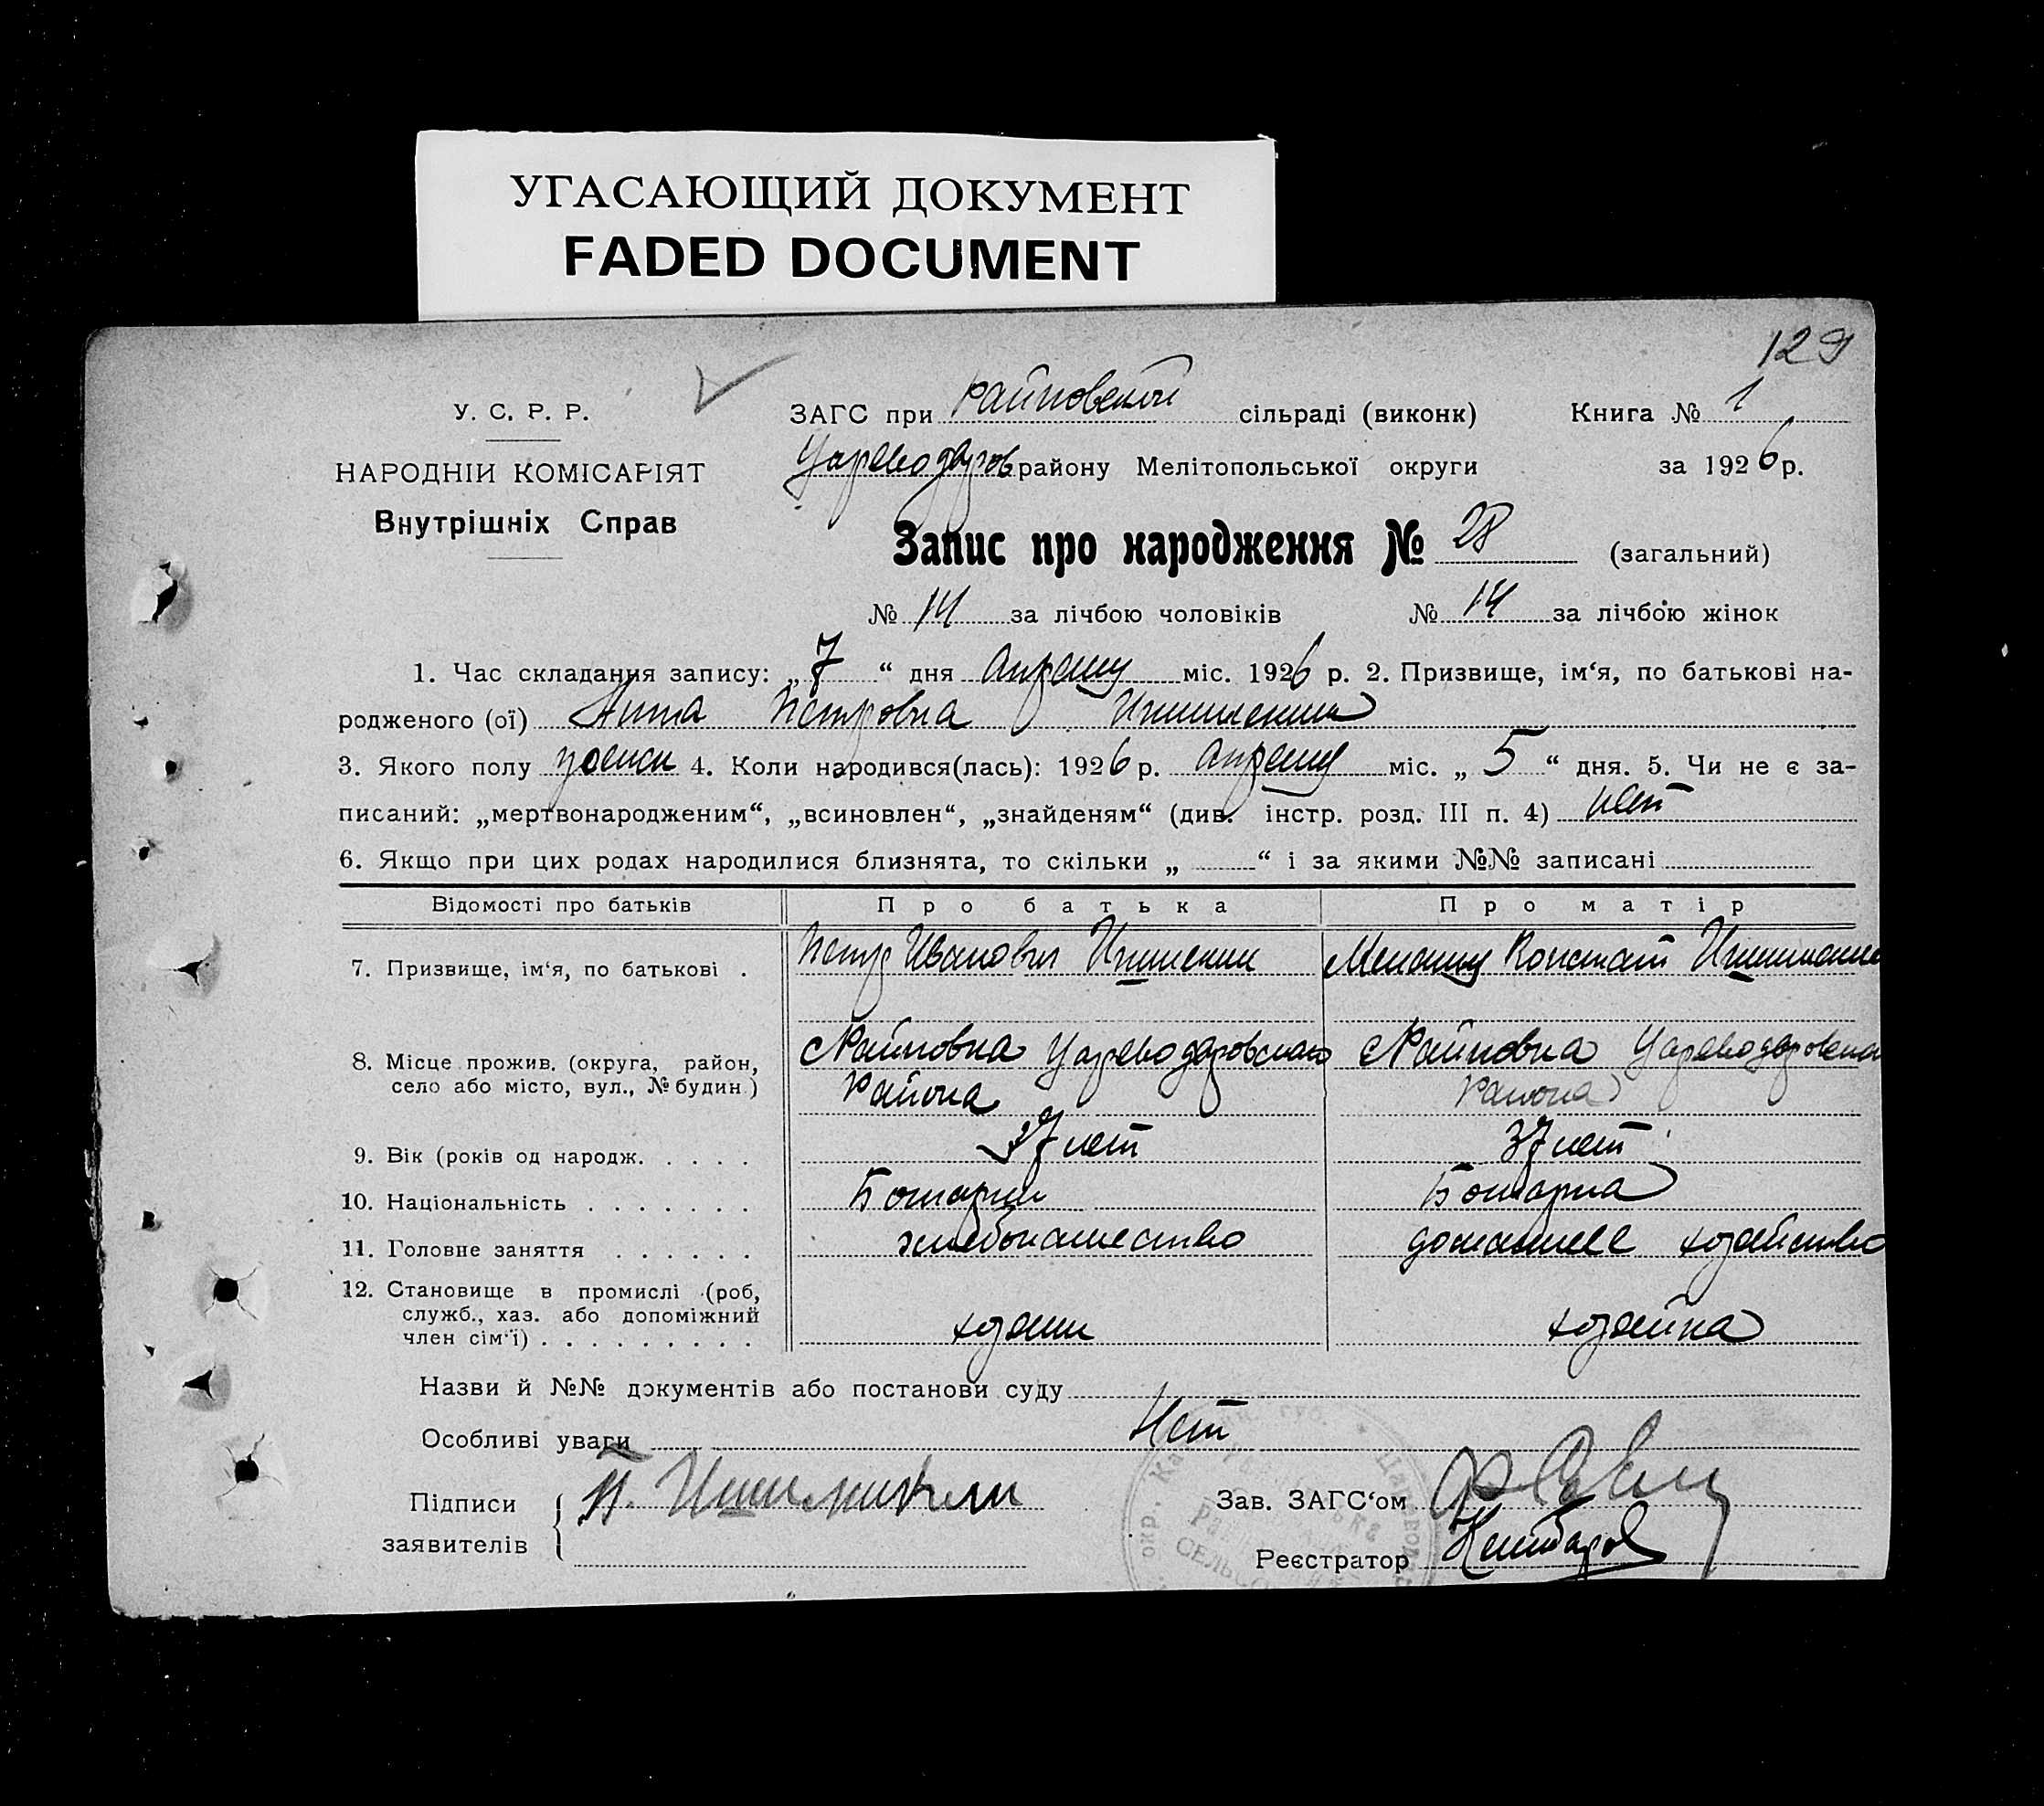 УГАСАЮЩИЙ ДОКУМЕНТ
FADED DOCUMENT
129
У. С. Р. Р.
ЗАГС при Райновской сільраді (виконк) Книга № 1
НАРОДНІЙ КОМІСАРІЯТ
Цареводаров району Мелітопольської округи за 1926 р.
Внутрішніх Справ
Запис про народження № 28 (загальний)
№ 14 за лічбою чоловіків № 14 за лічбою жінок
1. Час складання запису: „7“ дня Апреля міс. 1926 р. 2. Призвище, ім‘я, по батькові на-
родженого (ої) Анна Петровна
3. Якого полу 4. Коли народився(лась): 1926 р. апреля міс. „5“ дня. 5. Чи не є за-
писаний: „мертвонародженим“, „всиновлен“, „знайденям“ (див. інстр. розд. III п. 4) нет
6. Якщо при цих родах народилися близнята, то скільки „ “ і за якими №№ записані
Відомості про батьків Про батька Про матір
7. Призвище, ім‘я, по батькові . Петр Иванович
8. Місце прожив. (округа, район, село або місто, вул., № будин.) Райновка Цареводаровского Района Райновка Района
9. Вік (років од народж. . . . . 37 лет 37 лет
10. Національність . . . . . . . Болгарин Болгарка
11. Головне заняття . . . . . . хлебопашество домашнее хозяйство
12. Становище в промислі (роб, служб., хаз. або допоміжний член сім‘ї) . . . . . . . . . хозяин хозяйка
Назви й №№ документів або постанови суду
Особливі уваги Нет
Підписи
заявителів
Зав. ЗАГС‘ом
Реєстратор